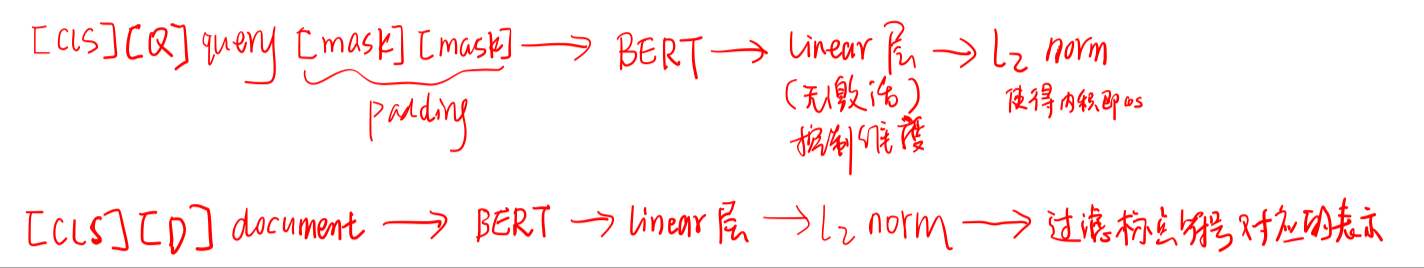 [CLS][Q] query [mask][mask] → BERT → Linear层 → L2 norm
padding
(无激活)
使得内积即cos
控制维度
[CLS][D] document → BERT → Linear层 → L2 norm → 过滤标点符号对应的表示